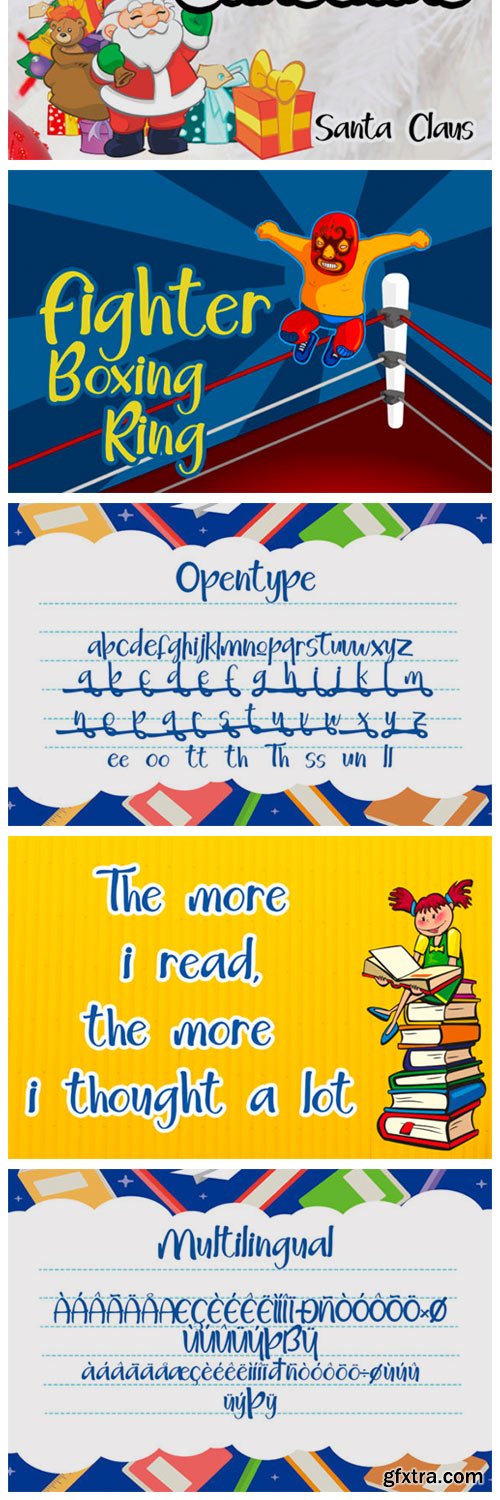 Santa Claus
Fighter
Boxing
Ring
Opentype
abcdefghijklmnopqrstuvwxyz
a b c d e f g h i j k l m
n o p q r s t u v w x y z
ee oo tt th Th ss un ll
The more
i read,
the more
i thought a lot
Multilingual
ÀÁÂÃÄÅÆÇÈÉÊËÌÍÎÏÐÑÒÓÔÕÖ×Ø
ÙÚÛÜÝÞßŸ
àáâãäåæçèéêëìíîïðñòóôõö÷øùúû
üýþÿ
gfxtra.com